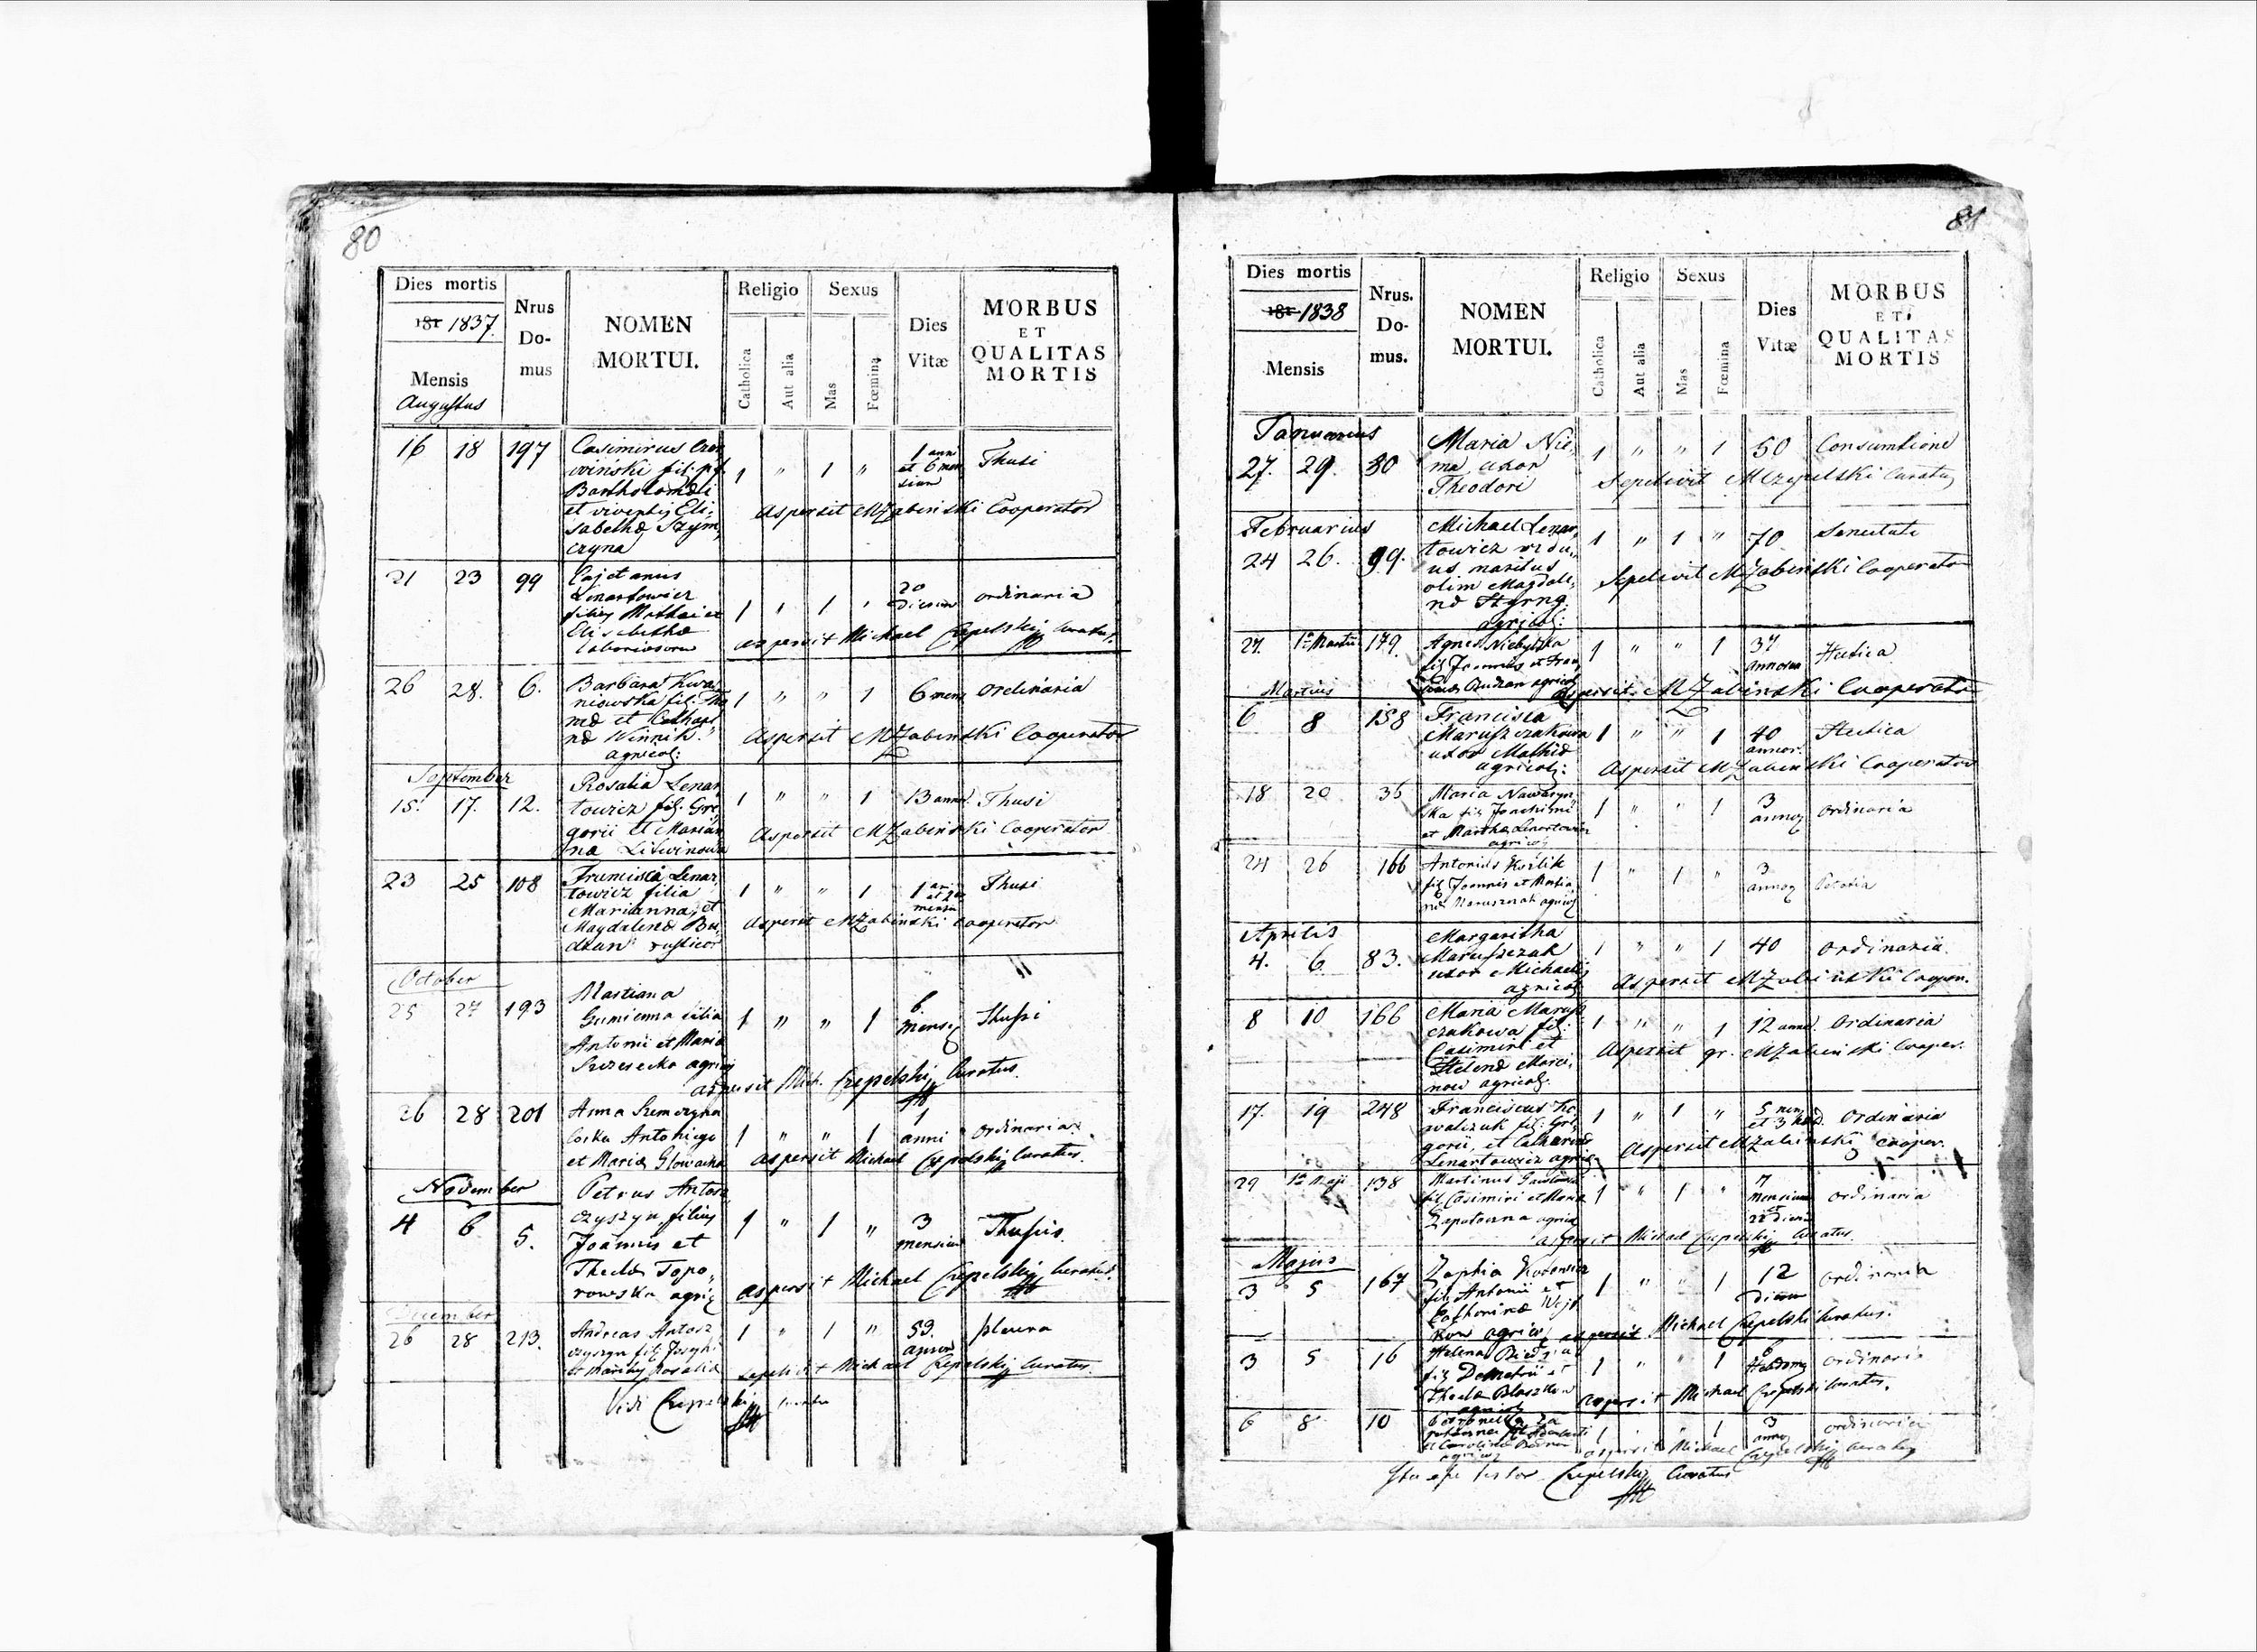 80
Dies mortis
181 1837.
Mensis
Augustus
Nrus
Do-
mus
NOMEN
MORTUI.
Religio
Catholica
Aut alia
Sexus
Mas
Fœmina
Dies
Vitæ
MORBUS
ET
QUALITAS
MORTIS
16 18 197
Casimirus
fil: pf.
Bartholomæi
et viventis Eli,
sabethæ Szym,
czyna
1 " 1 "
1 ann
et 6 men
sium
Thusi
Aspersit MZabinski Cooperator
21 23 99
Cajetanus
Lenartowicz
filius Mathæi et
Elisabethæ
laboriosorum
1 " 1 "
20
dierum
ordinaria
aspersit Michael Czepelskij Curatus.
26 28. 6.
Barbara Kwas
niowska fil: Tho
mæ et Cathari
næ Winnik.
agricol:
1 " " 1
6 mens
ordinaria
Aspersit MZabinski Cooperator
September
15. 17. 12.
Rosalia Lenar
towicz fil: Gre
gorii et Marian
na Litwinowa
1 " " 1
13 annor.
Thusi
Aspersit MZabinski Cooperator
23 25 108
Lenar,
towicz filia
Marianna, et
Magdalenæ Bu,
dzan rusticor
1 " " 1
1 an
et
mensiu
Thusi
Aspersit MZabinski Cooperator
October
25 27 193
Martiana
Gumienna filia
Antonii et Maria
agricol
1 " " 1
6
mensium
Thussi
aspersit Mich. Czepelskij Curatus.
26 28 201
Anna
Corka Antoniego
et Maria Głowacka
1 " " 1
1
anni
ordinaria.
aspersit Michael Czepelskij Curatus.
November
4 6 5.
Petrus Antosz
czyszyn filius
Joannis et
Theclæ Topo,
rowska agric
1 " 1 "
3
mensium
Thussis.
aspersit Michael Czepelskij Curatus.
December
26 28 213.
Andreas Antosz
czyszyn fil: Josephi
et Rosalia
1 " 1 "
59.
annor
pleura
sepelivit Michael Czepelskij Curatus.
Vidi Czepelskij
81
Dies mortis
181 1838
Mensis
Nrus.
Do-
mus.
NOMEN
MORTUI.
Religio
Catholica
Aut alia
Sexus
Mas
Fœmina
Dies
Vitæ
MORBUS
ET
QUALITAS
MORTIS
Januarius
27. 29. 30
Maria Nie,
ma uxor
Theodori
1 " " 1
50
Consumtione
Sepelivit MCzepelski Curatus
Februarius
24 26. 99.
Michael Lenar,
towicz vidu,
us maritus
olim Magdale,
næ
agricol:
1 " 1 "
70
Senectute
Sepelivit MZabinski Cooperator
27. 1a Martii 179.
Agnes
fil Joannis et
agricol
1 " " 1
37
annorum
Hectica
aspersit MZabinski Cooperator
Martius
6 8 158
Francisca
Maruszczakowa
uxor Mathiæ
agricol:
1 " " 1
40
annor.
Hectica
Aspersit MZabinski Cooperator
18 20 36
Maria
fil Joachimi
et Martha Lenartowicz
agricol
1 " " 1
3
annor
ordinaria
24 26 166
Antonius
fil Joannis et
Maruszczak agricol
1 " 1 "
3
annor
Aprilis
4. 6 83.
Margaritha
Maruszczak
uxor Michaelis
agricol
1 " " 1
40
ordinaria.
Aspersit MZabinski Cooper.
8 10 166
Maria Marusz
czakowa fil:
Casimiri et
Helenæ Marci,
now agricol:
1 " " 1
12 anno
Ordinaria
Aspersit gr. MZabinski Cooper.
17. 19 248
Franciscus Ko,
walczuk fil: Gri,
gorii, et Catharinæ
Lenartowicz agric
1 " 1 "
5 men
et 3
Ordinaria
Aspersit MZabinski Cooper.
29 1a Maji 138
Martinus
fil Casimiri et Maria
agric
1 " 1 "
7
mensium
et
22 dierum
ordinaria
aspersit Michael Czepelskij Curatus.
Majus
3 5 167
Zophia
fil Antonii et
Catharinæ
agric
1 " " 1
12
dierum
ordinaria
aspersit Michael Czepelskij Curatus.
3 5 16
Helena
fil Demetrii et
Theclæ
agricol
1 " " 1
6
Hebdom
ordinaria
aspersit Michael Czepelski Curatus.
6 8 10
et Carolina
1 " " 1
3
annor
ordinaria
aspersit Michael Czepelskij Curatus
Ita esse testor Czepelskij Curatus